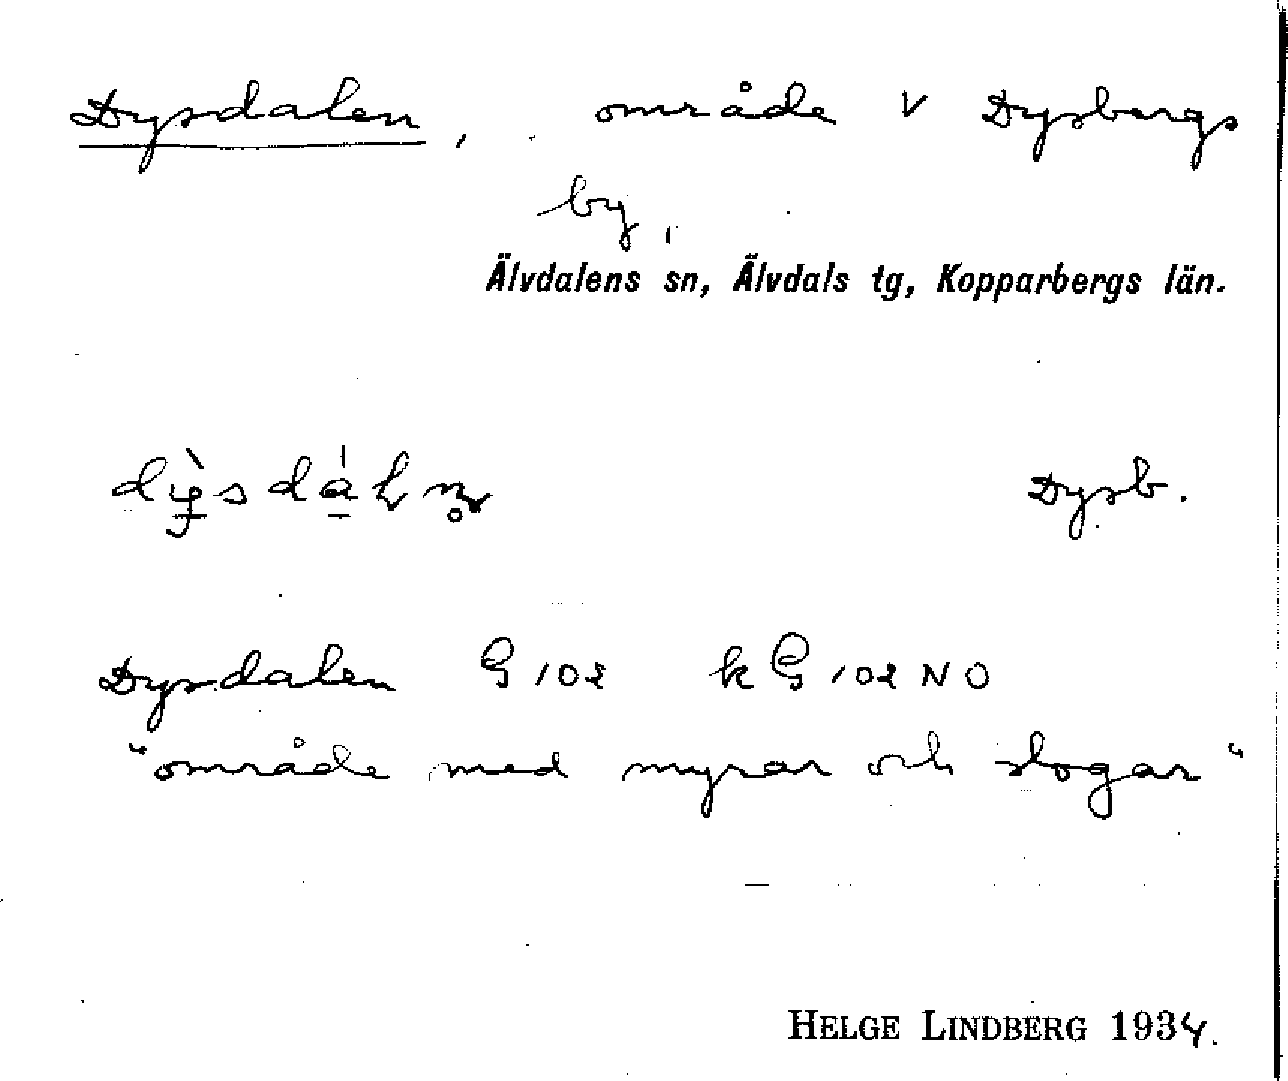 Dysdalen, område V Dysbergs
by,
Älvdalens sn, Älvdals tg, Kopparbergs län.
Dysb.
Dysdalen G 102 kG 102 NO
"område med myrar och slogar"
HELGE LINDBERG 1934.